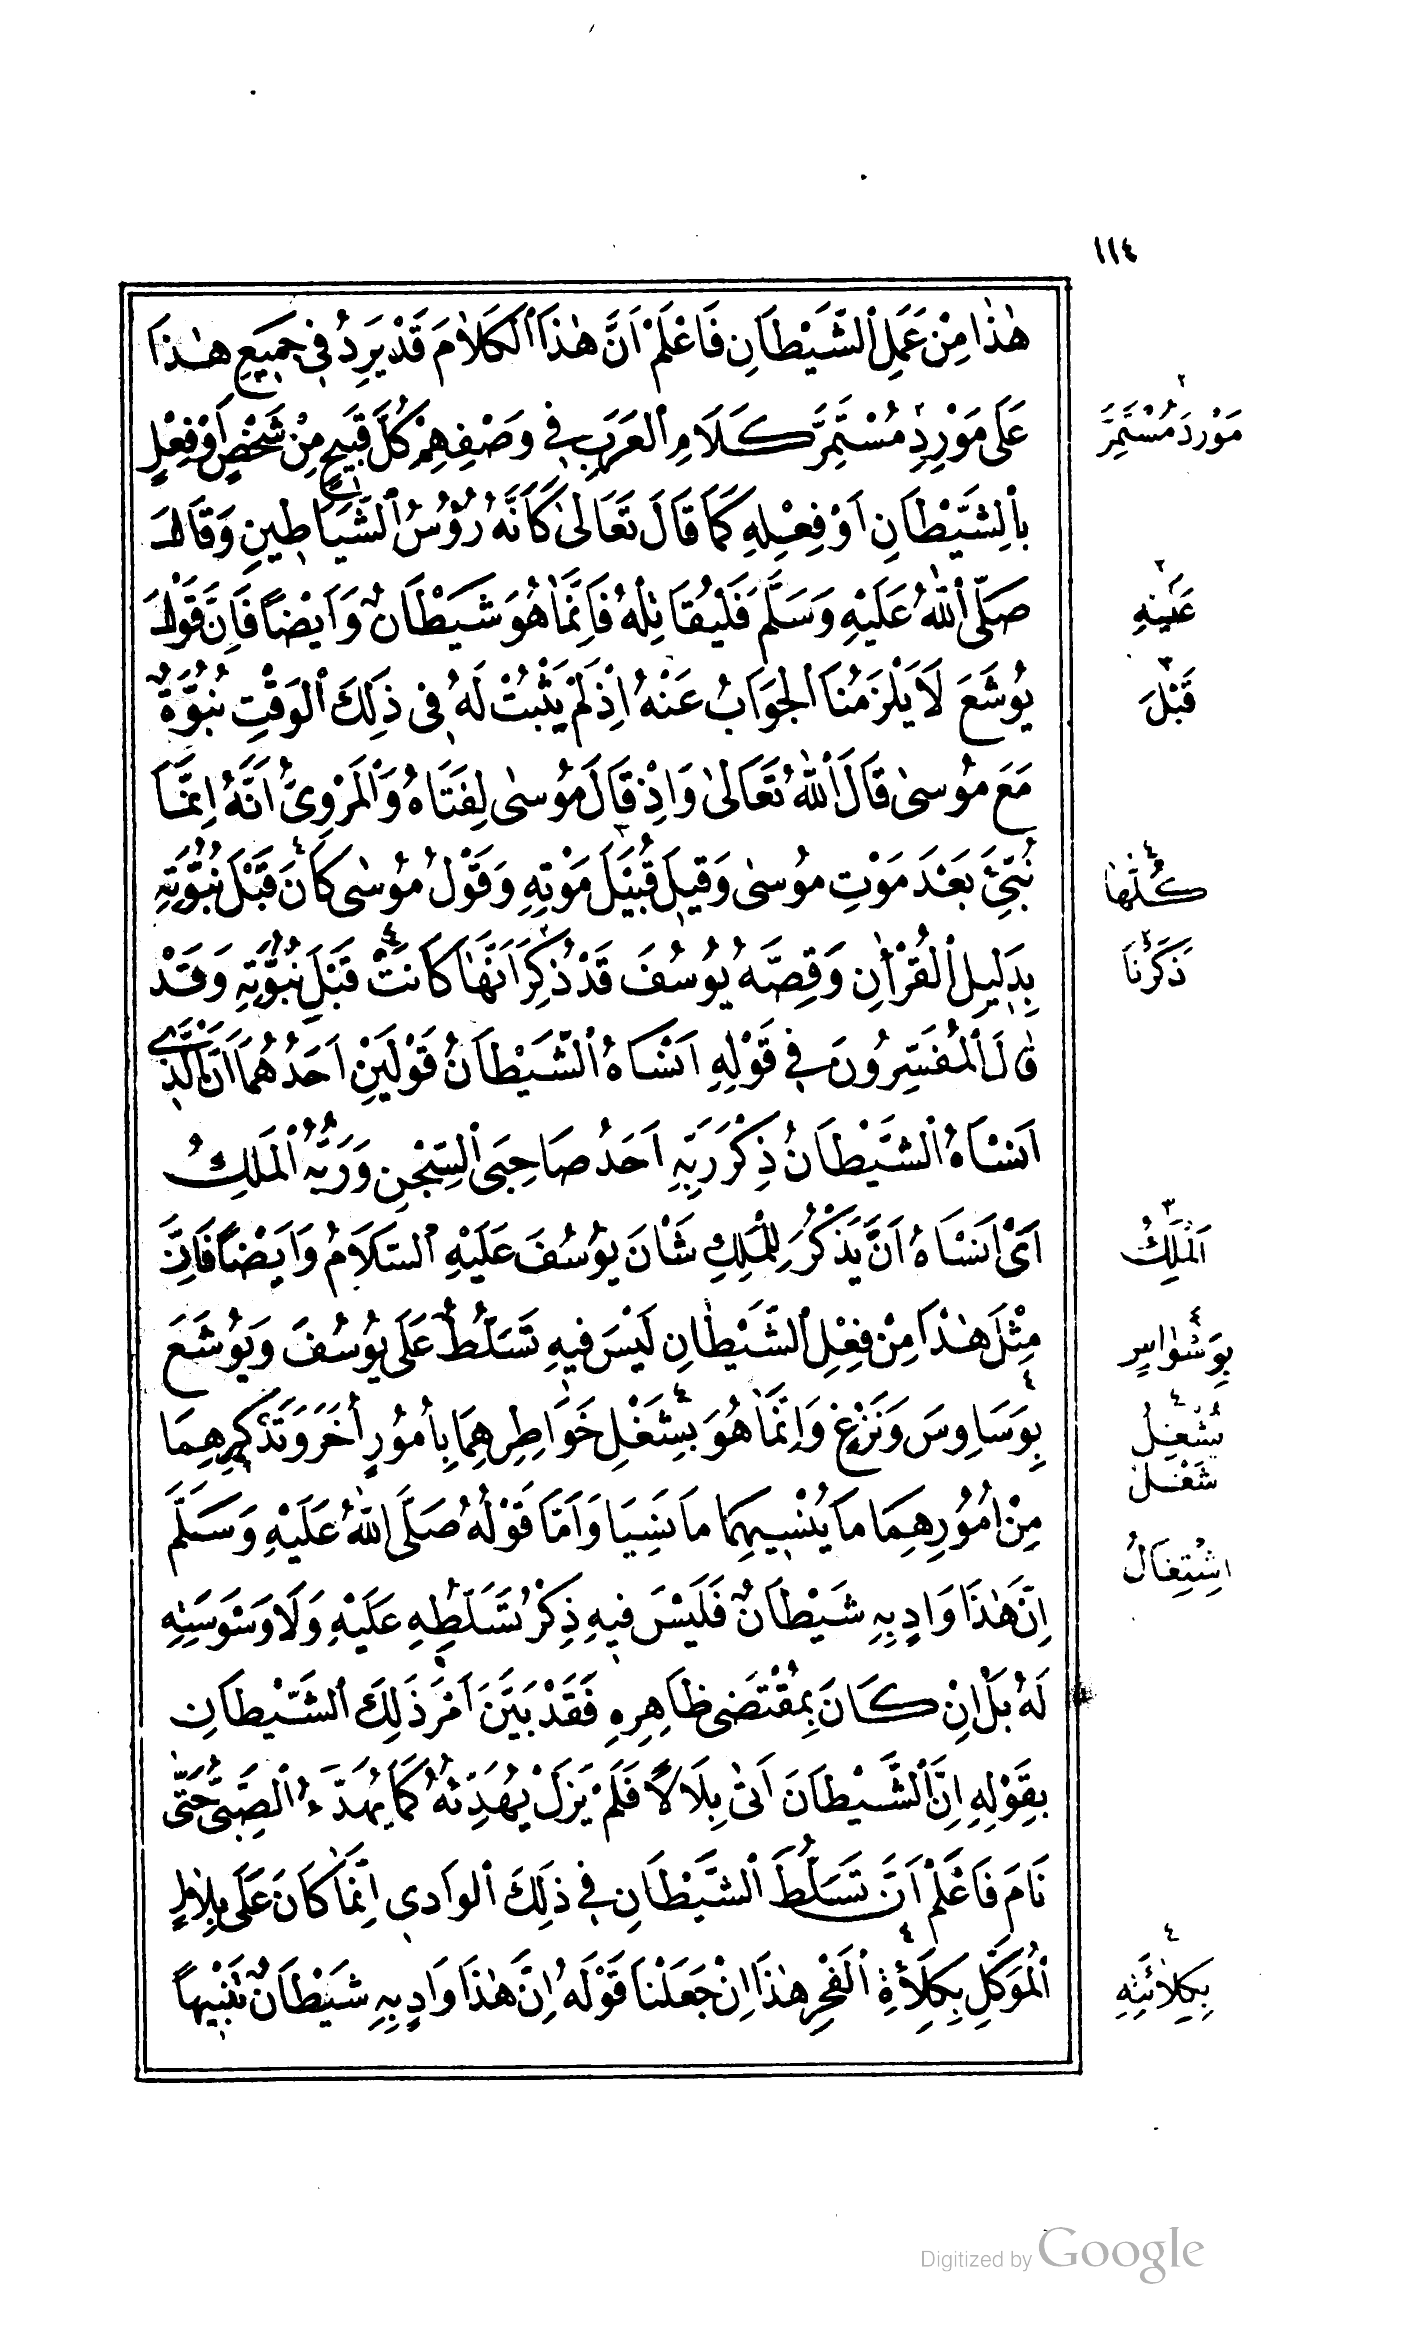 ١١٤
هٰذَا مِنْ عَمَلِ ٱلشَّيْطَانِ فَاعْلَمْ اَنَّ هٰذَا ٱلْكَلَامَ قَدْ يَرِدُ فِى جَمِيعِ هٰذَا
عَلَى مَوْرِدِ مُسْتَمِرِّ كَلَامِ ٱلْعَرَبِ فِى وَصْفِهِمْ كُلَّ قَبِيحٍ مِنْ شَخْصٍ اَوْ فِعْلٍ
بِالشَّيْطَانِ اَوْ فِعْلِهِ كَمَا قَالَ تَعَالَى كَاَنَّهُ رُؤُسُ ٱلشَّيَاطِينِ وَقَالَ
صَلَّى ٱللّٰهُ عَلَيْهِ وَسَلَّمَ فَلْيُقَاتِلْهُ فَاِنَّمَا هُوَ شَيْطَانٌ وَاَيْضًا فَاِنَّ قَوْلَ
يُوشَعَ لَا يَلْزَمُنَا ٱلْجَوَابُ عَنْهُ اِذْ لَمْ يَثْبُتْ لَهُ فِى ذٰلِكَ ٱلْوَقْتِ نُبُوَّةٌ
مَعَ مُوسٰى قَالَ ٱللّٰهُ تَعَالَىٰ وَاِذْ قَالَ مُوسٰى لِفَتَاهُ وَٱلْمَرْوِىُّ اَنَّهُ اِنَّمَا
نُبِّئَ بَعْدَ مَوْتِ مُوسىٰ وَقِيلَ قُبَيْلَ مَوْتِهِ وَقَوْلُ مُوسٰى كَانَ قَبْلَ نُبُوَّتِهِ
بِدَلِيلِ ٱلْقُرْاٰنِ وَقِصَّهُ يُوسُفَ قَدْ ذُكِرَ اَنَّهَا كَانَتْ قَبْلَ نُبُوَّتِهِ وَقَدْ
قَالَ ٱلْمُفَسِّرُونَ فِى قَوْلِهِ اَنْسَاهُ ٱلشَّيْطَانُ قَوْلَيْنِ اَحَدُهُمَا اَنَّ ٱلَّذِى
اَنْسَاهُ ٱلشَّيْطَانُ ذِكْرَ رَبِّهِ اَحَدُ صَاحِبَىِ ٱلسِّجْنِ وَرَبُّهُ ٱلْمَلِكُ
اَىْ اَنْسَاهُ اَنْ يَذْكُرَ لِلْمَلِكِ شَأْنَ يُوسُفَ عَلَيْهِ ٱلسَّلَامُ وَاَيْضًا فَاِنَّ
مِثْلَ هٰذَا مِنْ فِعْلِ ٱلشَّيْطَانِ لَيْسَ فِيهِ تَسَلُّطٌ عَلَى يُوسُفَ وَيُوشَعَ
بِوَسَاوِسَ وَنَزْغٍ وَاِنَّمَا هُوَ بِشَغْلِ خَوَاطِرِهِمَا بِاُمُورٍ اُخَرَ وَتَذْكِيرِهِمَا
مِنْ اُمُورِهِمَا مَا يُنْسِيهِمَا مَا نَسِيَا وَاَمَّا قَوْلُهُ صَلَّى ٱللّٰهُ عَلَيْهِ وَسَلَّمَ
اِنَّ هٰذَا وَادٍ بِهِ شَيْطَانٌ فَلَيْسَ فِيهِ ذِكْرُ تَسَلُّطِهِ عَلَيْهِ وَلَا وَسْوَسَتِهِ
لَهُ بَلْ اِنْ كَانَ بِمُقْتَضَى ظَاهِرِهِ فَقَدْ بَيَّنَ اَمْرَ ذٰلِكَ ٱلشَّيْطَانِ
بِقَوْلِهِ اِنَّ ٱلشَّيْطَانَ اَتَى بِلَالًا فَلَمْ يَزَلْ يُهَدِّئُهُ كَمَا يُهَدَّءُ ٱلصَّبِىُّ حَتَّى
نَامَ فَاعْلَمْ اَنَّ تَسَلُّطَ ٱلشَّيْطَانِ فِى ذٰلِكَ ٱلْوَادِى اِنَّمَا كَانَ عَلَى بِلَالٍ
ٱلْمُوَكَّلِ بِكِلَأَةِ ٱلْفَجْرِ هٰذَا اِنْ جَعَلْنَا قَوْلَهُ اِنَّ هٰذَا وَادٍ بِهِ شَيْطَانٌ تَنْبِيهًا
٢
مَوْرِدَ مُسْتَمِرِّ
٢
عَيْنِهِ
٣
قَبْلَ
٤
كُلُّهَا
٢
ذَكَرْنَا
٣
اَلْمَلِكُ
٤
بِوَسْوَاسٍ
٤
يُشْغِلُ
شَغْلَ
اِشْتِغَالُ
٤
بِكِلَائَتِهِ
Digitized by Google